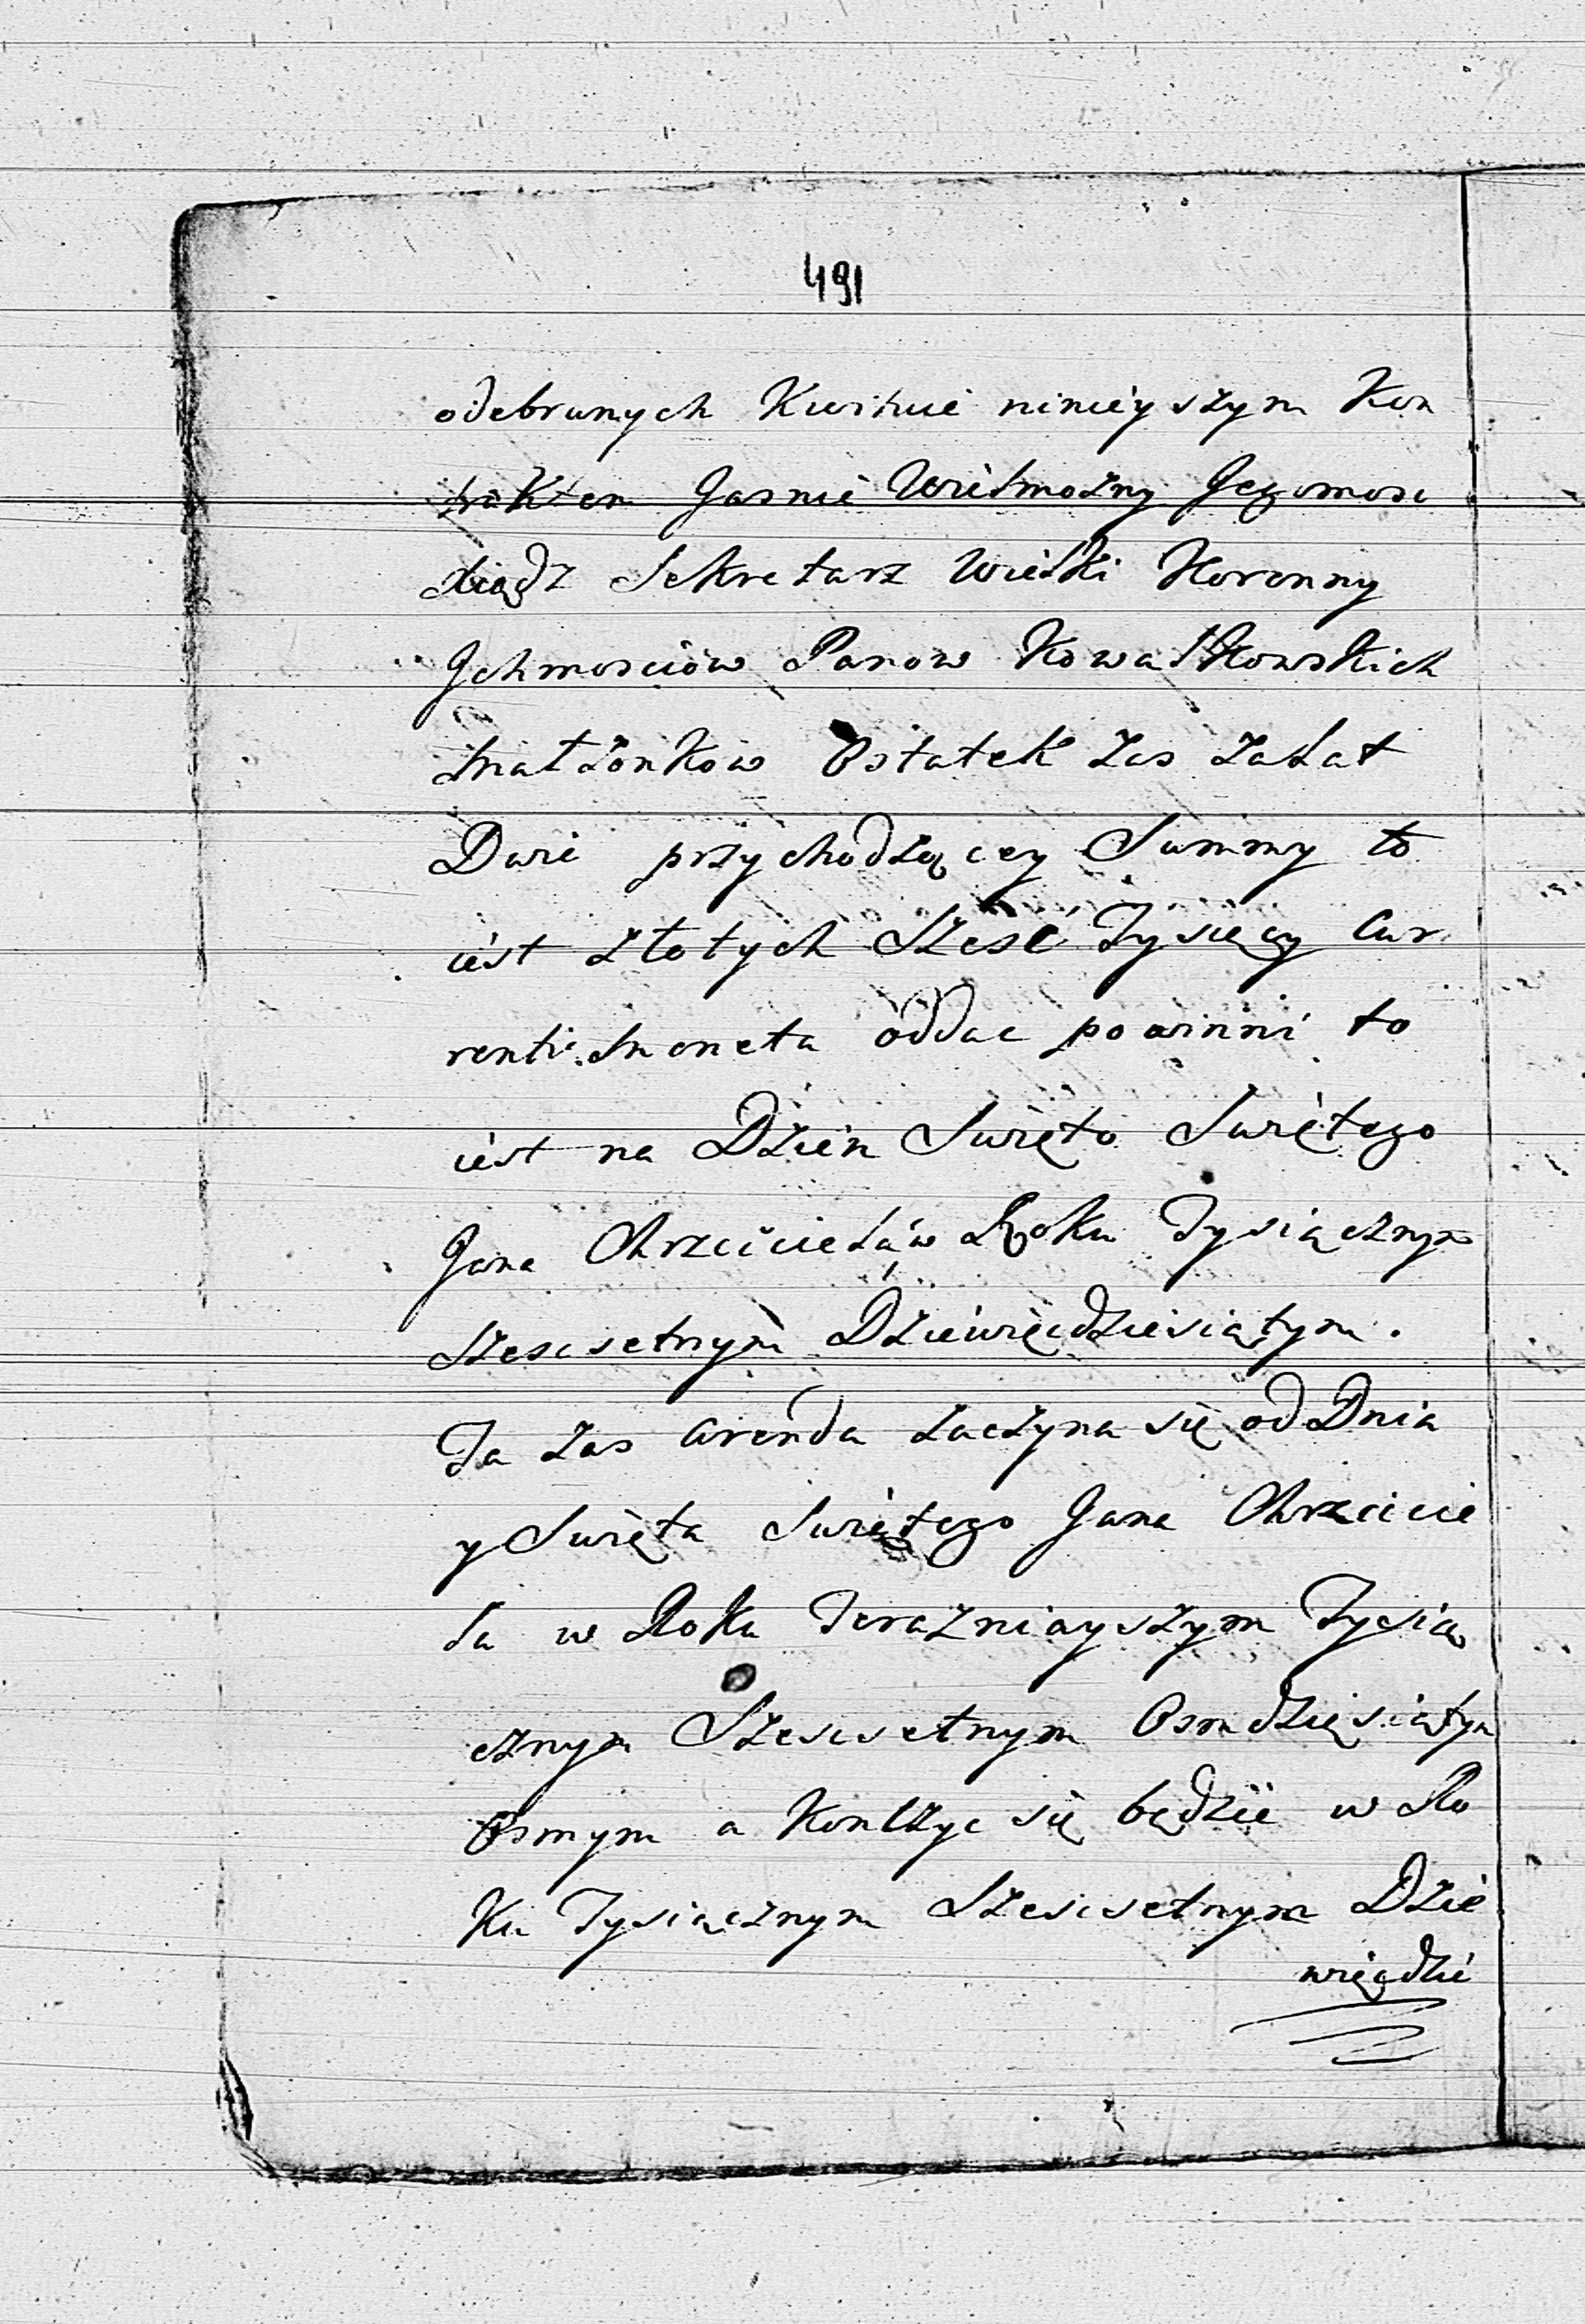 491
odebranych Kwituie ninieyszym Kon
traktem Jasnie Wielmozny Jegomosc
Xiądz Sekretarz Wielki Koronny
Ichmosciow Panow Kowalkowskich
Małżonkow Ostatek zas za Lat
Dwie przychodzącey Summy to
iest złotych Sześć Tysięcy Cur
renti Moneta oddac powinni to
iest na Dzien Swięto Swiętego
Jana Chrzciciela w Roku Tysiącznym
Szescsetnym Dziewięcdziesiątym.
Ta zas arenda zaczyna się od Dnia
y Swięta Swiętego Jana Chrzcicie
la w Roku Terazniayszym Tysią
cznym Szescsetnym Osmdziesiątym
Osmym a Konczyc się będzie w Ro
Ku Tysiącznym Szescsetnym Dzie
więcdzie